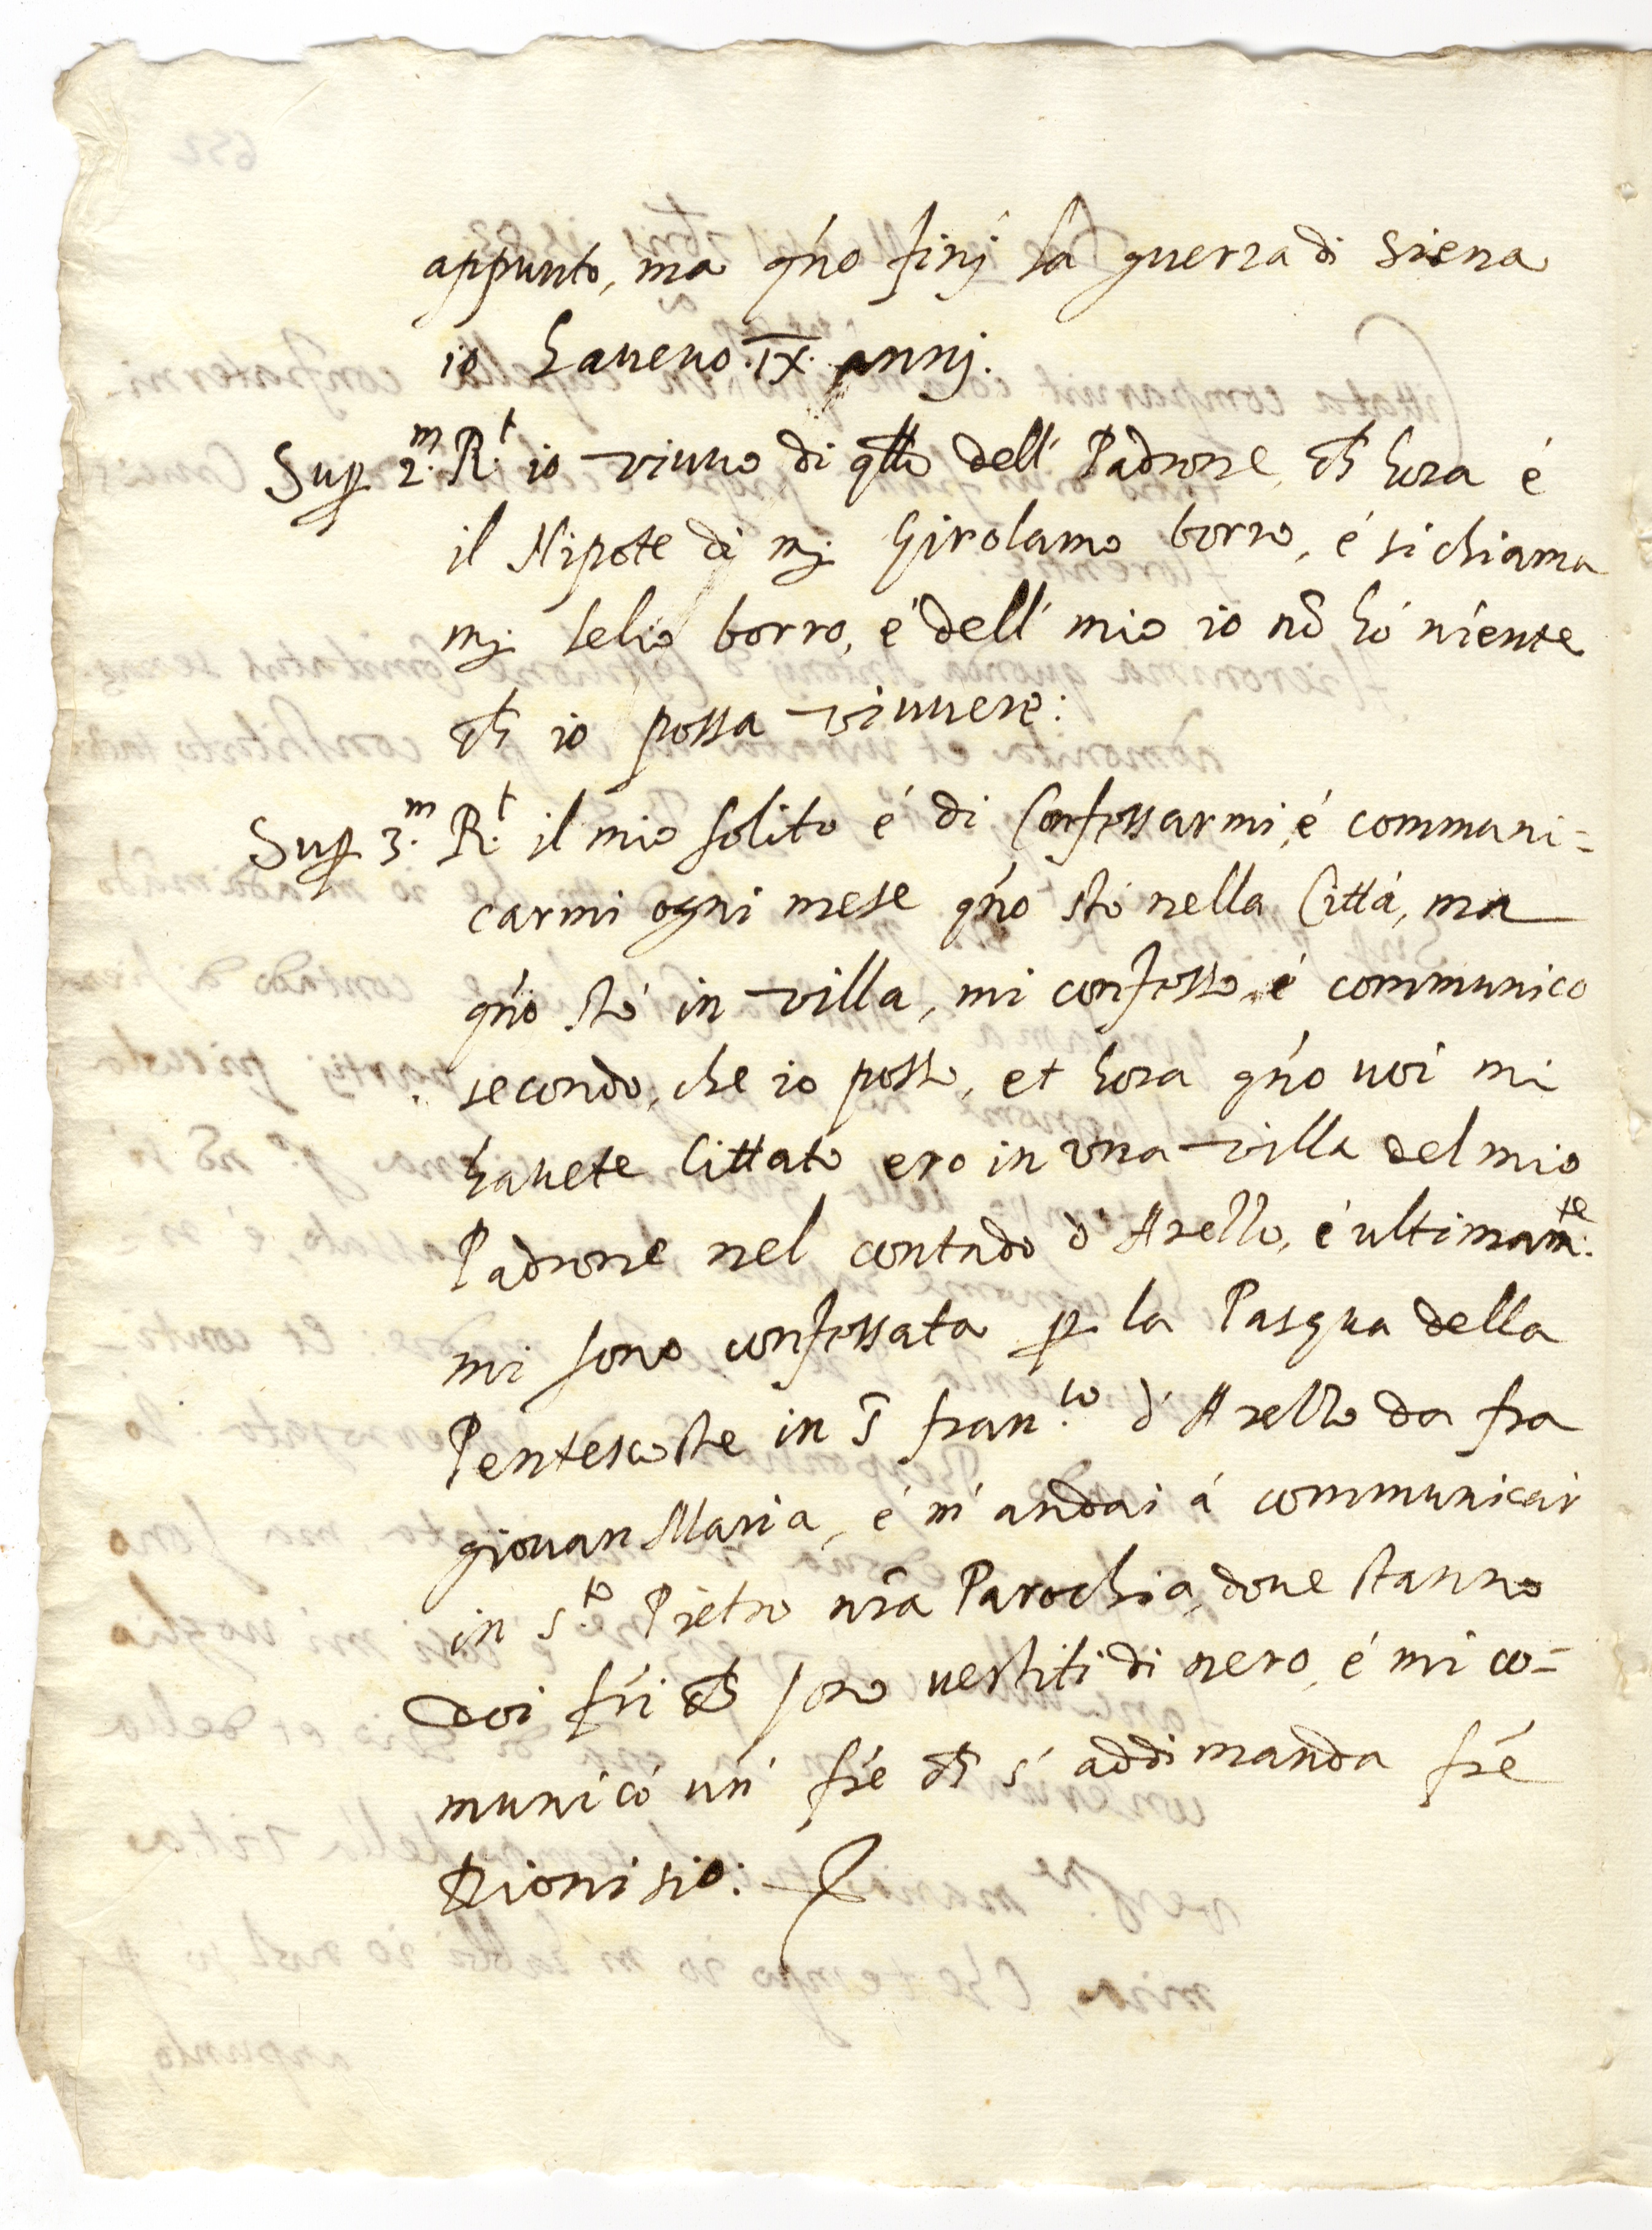 appunto, ma qn̄o finj la guerra di Siena
io haueuo .IX. annj.
Sup̱ 2.m R.t io viuuo di qllo dell' Padrone, ch̄ hora é
il Nipote di mj. Girolamo borro, é si chiama
mj. lelio borro, é dell' mio io nō hó niente
ch̄ io possa viuuere:
Sup̱ 3.m R.t il mio solito é di Confessarmi, é communi=
carmi ogni mese qn̄o stó nella Cittá, ma
qn̄o stó in villa, mi confesso, é communico
secondo, che io posso, et hora qn̄o uoi mi
hauete Cittato ero in vna villa del mio
Padrone nel contado d' Arezzo, é ultimam.te
mi sono confessata p̱ la Pasqua della
Pentescoste in S̄ fran.co d' Arezzo da fra
giouan Maria, é m' andai á communicar
in S.to Pietro nr̄a Parochia, doue stanno
doi fr̄i ch̄ sono uestiti di nero, é mi co=
municó un' fr̄e ch̄ s' addimanda fr̄e
Dionisio: